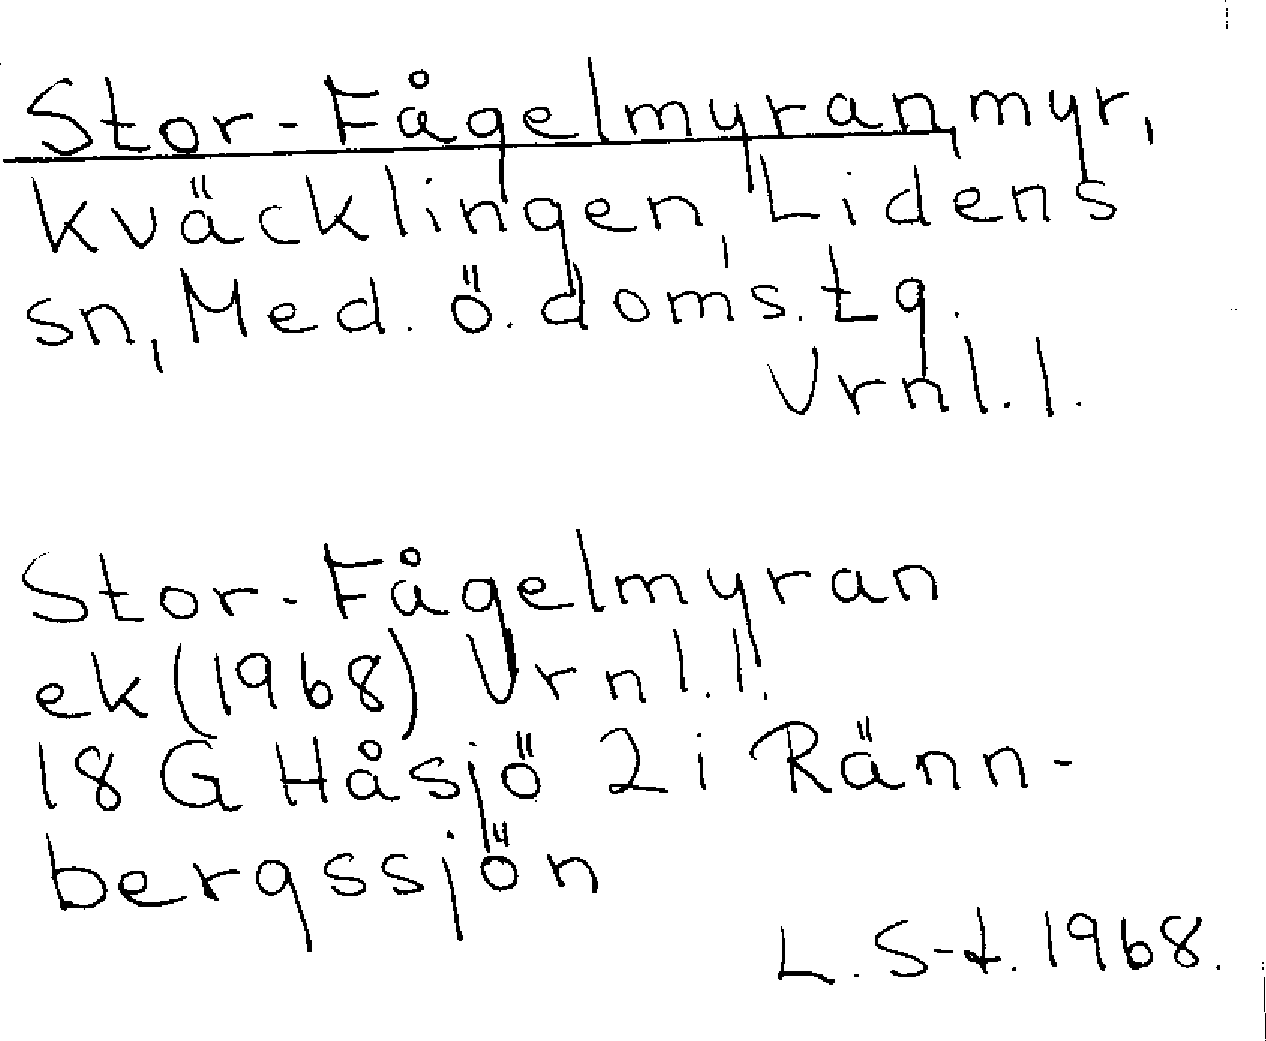 Stor-Fågelmyran, myr,
kväcklingen, Lidens
sn, Med. ö. doms. tg.
Vrnl. l.
Stor-Fågelmyran
ek (1968) Vrnl. l.
18 G Håsjö 2 i Ränn-
bergssjön
L. S-t. 1968.